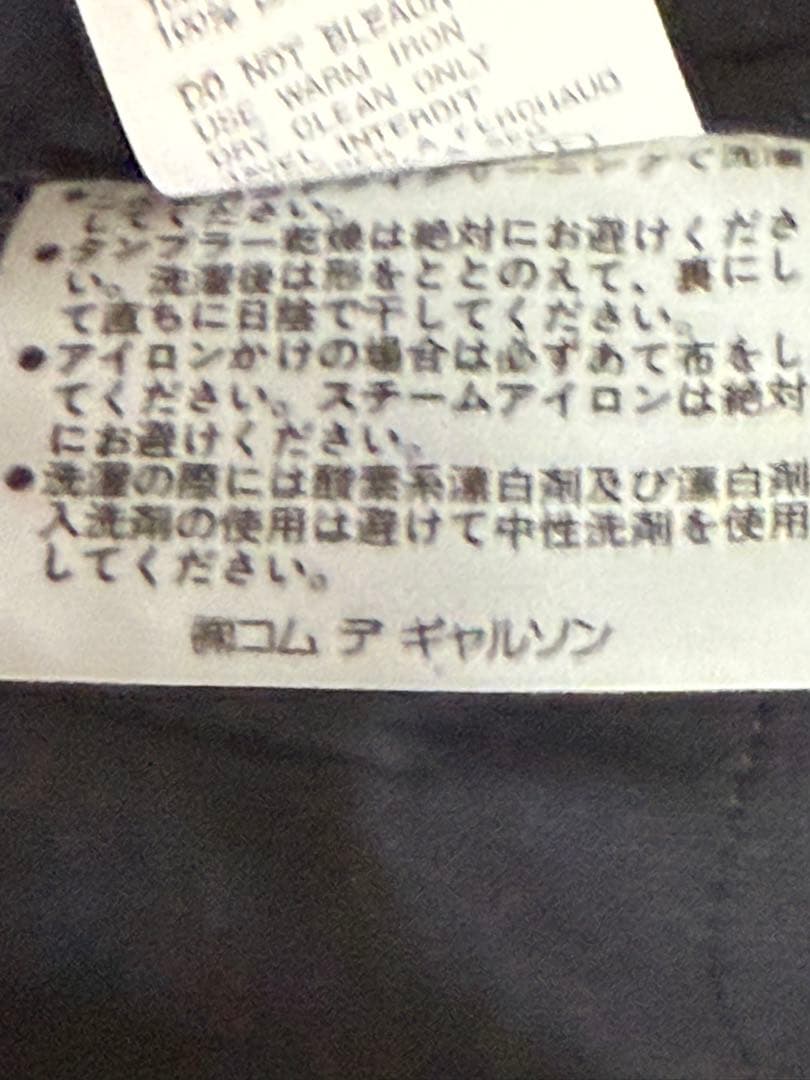 100%
DO NOT BLEACH
USE WARM IRON
DRY CLEAN ONLY
JAVEL INTERDIT
してください。
●タンブラー乾燥は絶対にお避けくださ
い。洗濯後は形をととのえて、裏にし
て直ちに日陰で干してください。
●アイロンかけの場合は必ずあて布をし
てください。スチームアイロンは絶対
にお避けください。
●洗濯の際には酸素系漂白剤及び漂白剤
入洗剤の使用は避けて中性洗剤を使用
してください。
㈱コム デ ギャルソン